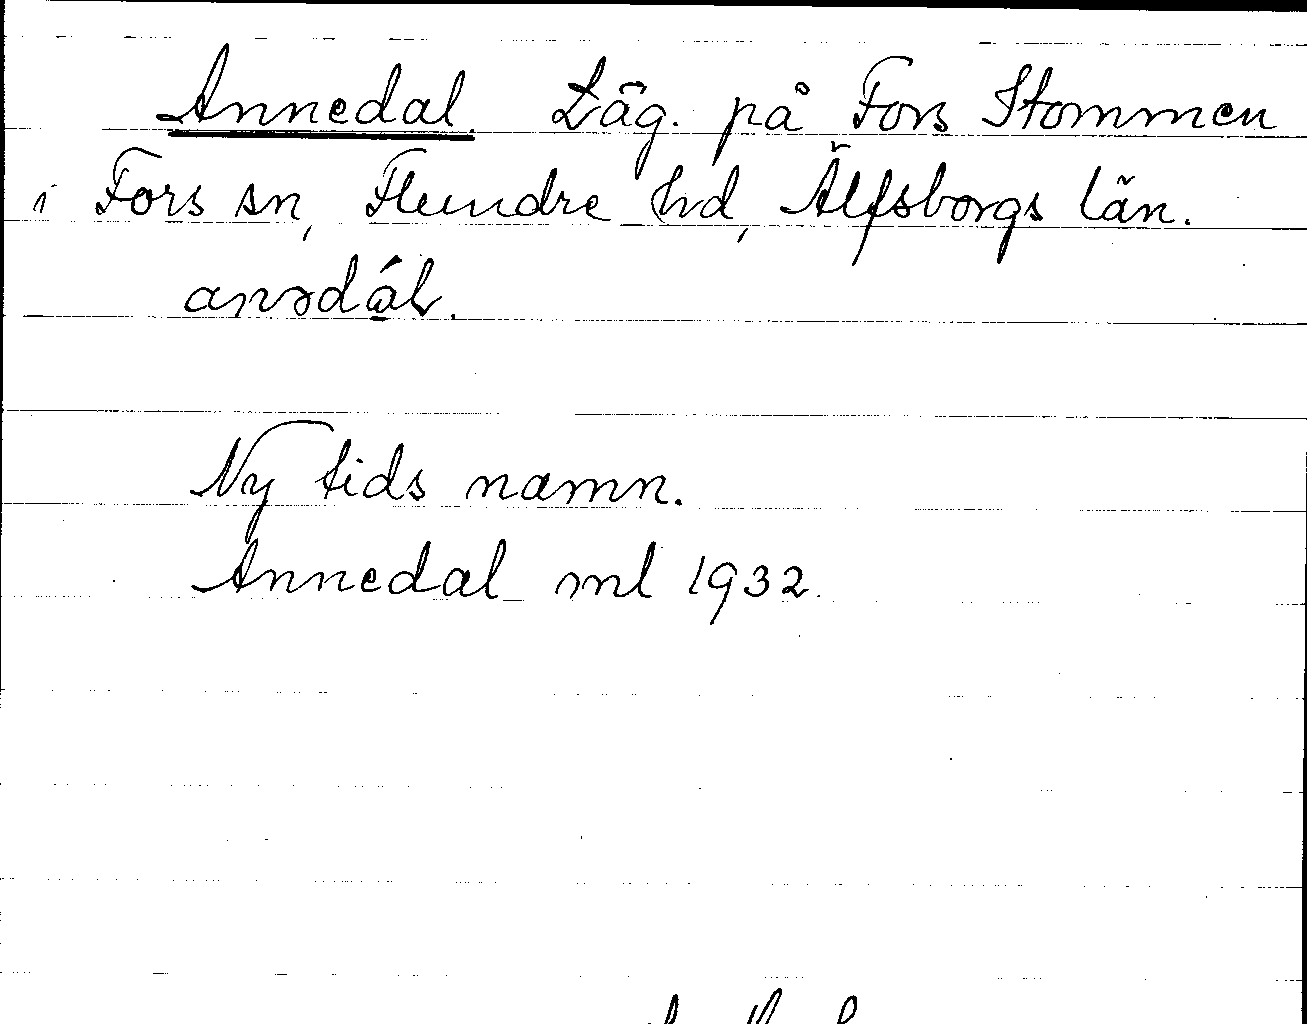 Annedal Läg. på Fors Stommen
i Fors sn, Flundre hd, Älfsborgs län.
Ny tids namn.
Annedal ml 1932.